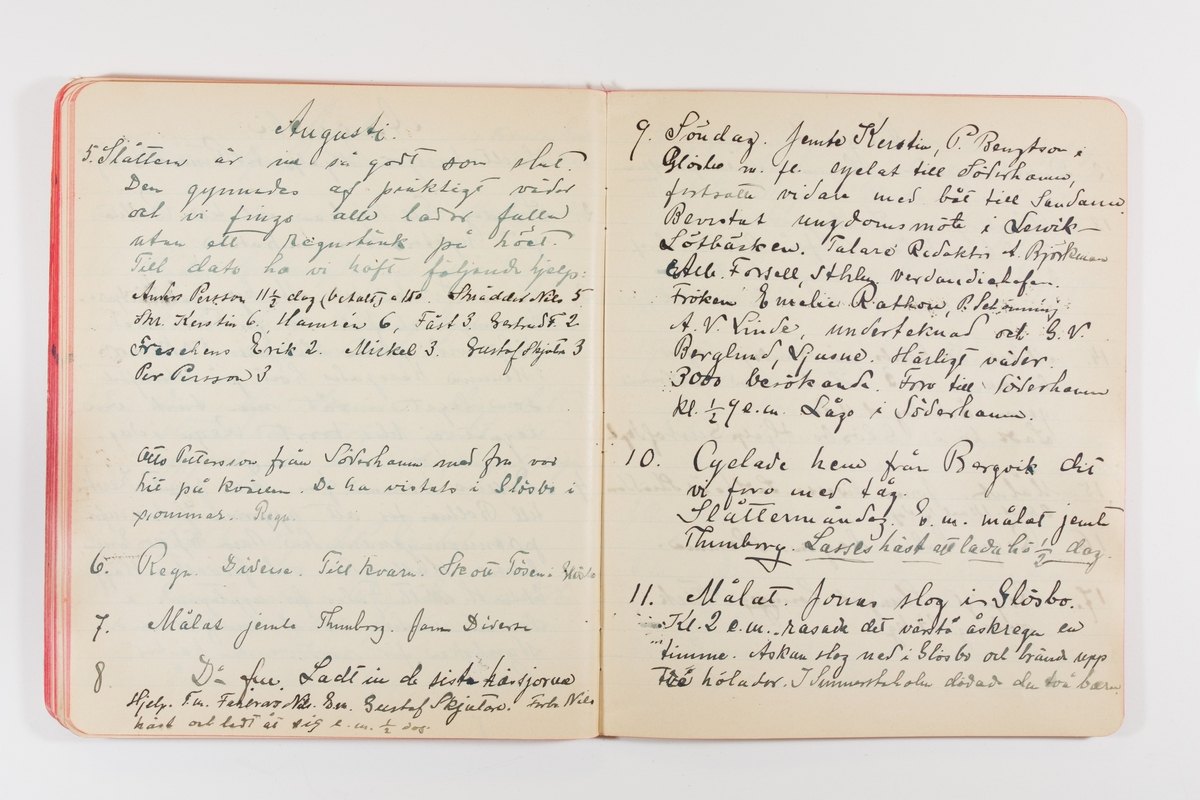 Augusti.
5. Slåttern är nu så godt som slut.
Den gynnades af präktigt väder
och vi fingo alla lador fulla
utan ett regnstänk på höet.
Till dato ha vi haft följande hjelp:
Anders Persson 11½ dag (betalt) Skräddar Nils 5
Kerstin 6. Hamrén 6, Fäst 3. Gertrud F. 2
Freschens Erik 2. Mickel 3. Gustaf Skjutar 3
Per Persson 3
Otto Pettersson från Söderhamn med fru var
hit på kvällen. De ha vistats i Glösbo i
sommar. Regn.
6. Regn. Diverse. Till kvarn. Skott Tösen i Glösbo
7. Målat jemte Thunborg. Diverse
8 D:o Ladt in de sista hässjorna
Hjelp. F.m. Em. Gustaf Skjutare. Nils
häst och ladt åt sig e.m. ½ dag.
9. Söndag. Jemte Kerstin, P. Bengtson i
Glösbo m. fl. cyclat till Söderhamn,
fortsatte vidare med båt till Sandarne.
Bevistat ungdomsmöte i Lervik-
Lötbäcken. Talare Redaktör A. Björkman
Alb. Forsell, Sthlm, Verdandichefen.
Fröken Emelie Rathou,
A. V. Linde, undertecknad och G. V.
Berglund, Ljusne. Härligt väder.
3000 besökande. Foro till Söderhamn
kl. ½ 9 e.m. Lågo i Söderhamn.
10. Cyclade hem från Bergvik dit
vi foro med tåg.
Slåttermåndag. E.m. målat jemte
Thunborg. Lasses häst att lada hö ½ dag.
11. Målat Jonas slog i Glösbo.
Kl. 2 e.m. rasade det värsta åskregn en
timme. Åskan slog ned i Glösbo och brände upp
hölador. I dödade den två barn